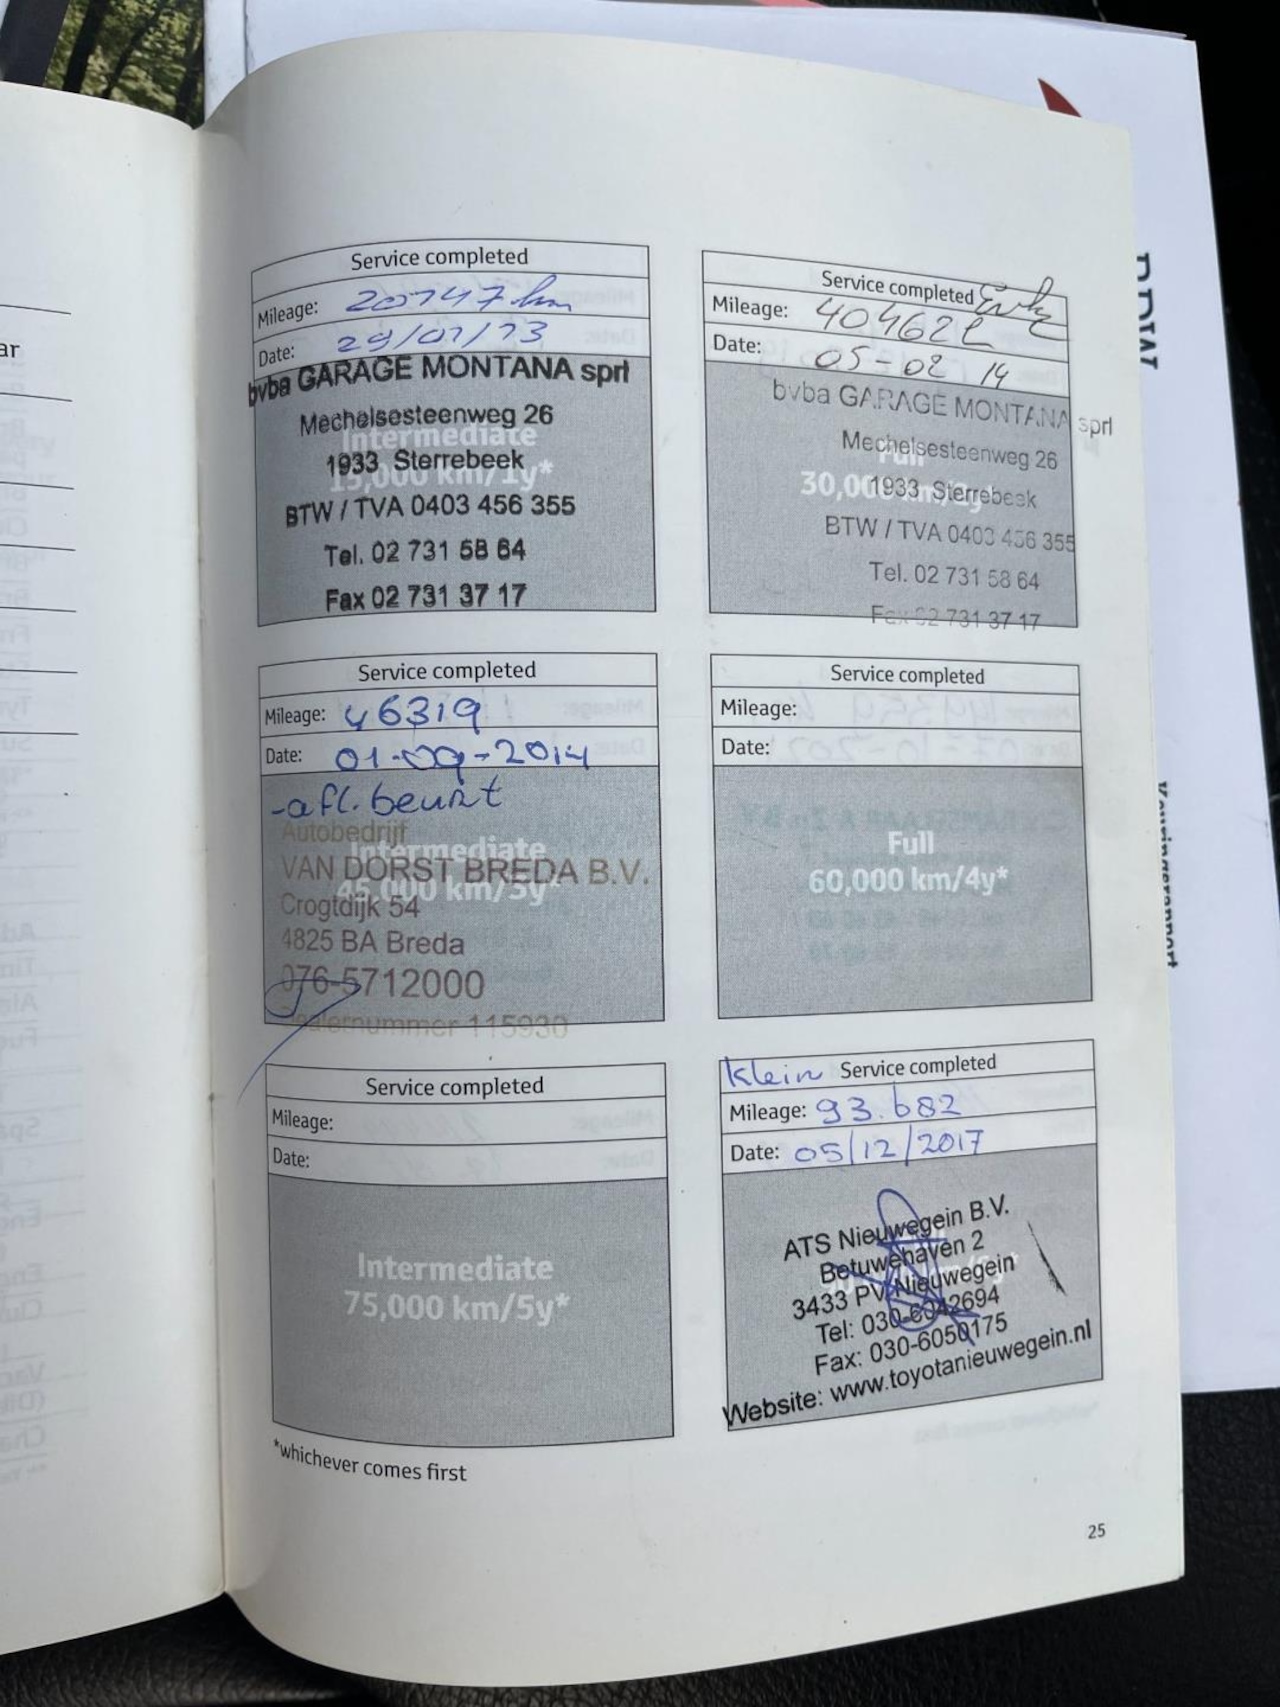 Service completed
Mileage: 20747 km
Date: 29/01/13
bvba GARAGE MONTANA sprl
Mechelsesteenweg 26
Intermediate
1933 Sterrebeek
15,000 km/1y*
BTW / TVA 0403 456 355
Tel. 02 731 58 64
Fax 02 731 37 17
Service completed
Mileage: 40462
Date: 05-02 14
bvba GARAGE MONTANA sprl
Mechelsesteenweg 26
Full
1933 Sterrebeek
BTW / TVA 0403 456 355
Tel. 02 731 58 64
Fax 02 731 37 17
Service completed
Mileage: 46319
Date: 01-09-2014
-afl. beurt
Autobedrijf
Intermediate
VAN DORST BREDA B.V.
45,000 km/3y*
Crogtdijk 54
4825 BA Breda
076-5712000
Dealernummer 115930
Service completed
Mileage:
Date:
Full
60,000 km/4y*
Service completed
Mileage:
Date:
Intermediate
75,000 km/5y*
Klein Service completed
Mileage: 93.682
Date: 05/12/2017
ATS Nieuwegein B.V.
Betuwehaven 2
3433 PV Nieuwegein
Tel: 030-6042694
Fax: 030-6050175
Website: www.toyotanieuwegein.nl
*whichever comes first
25
ar
Keuringsrapport